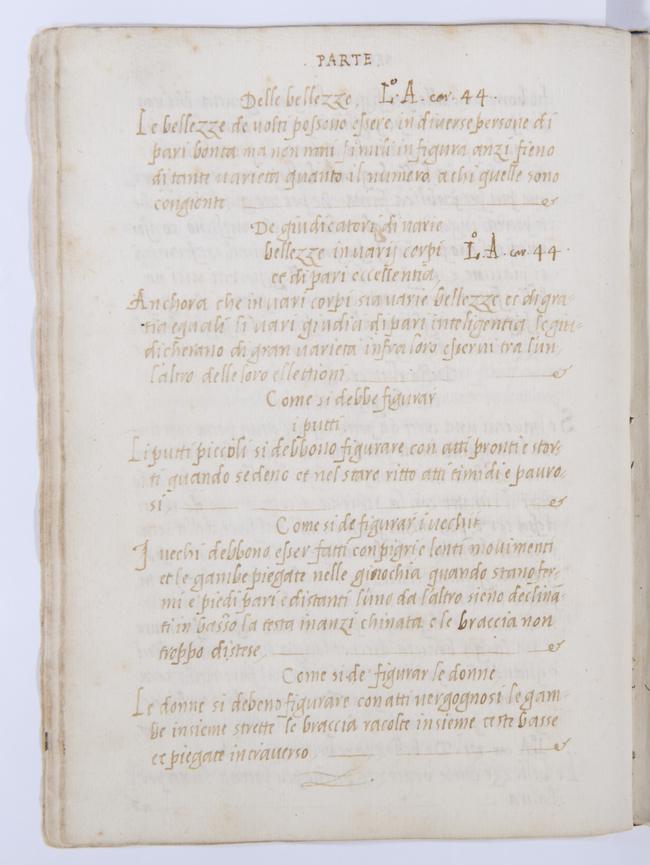 PARTE
Delle bellezze. Lº. A. car 44.
Le bellezze de volti possono essere in diverse persone di
pari bonta ma non mai simili in figura anzi fieno
di tante varieta quanto il numero a chi quelle sono
congionte
De giudicatori di varie
bellezze in varij corpi Lº. A. car 44.
et di pari eccellentia
Anchora che in vari corpi sia varie bellezze et di gra-
tia equali li vari giudici di pari inteligentia le giu-
dicherano di gran varieta infra loro esservi tra l'un
l'altro delle loro ellettioni
Come si debbe figurar
i putti
Li putti piccoli si debbono figurare con atti pronti e stor-
ti quando sedeno et nel stare ritto atti timidi e pauro-
si
Come si de figurar i vechii
I vechi debbono esser fatti con pigri e lenti movimenti
et le gambe piegate nelle ginochia quando stano fer-
mi e piedi pari e distanti l'uno da l'altro sieno declina-
ti in basso la testa inanzi chinata e le braccia non
troppo distese
Come si de figurar le donne
Le donne si debeno figurare con atti vergognosi le gam-
be insieme strette le braccia racolte insieme teste basse
et piegate in traverso